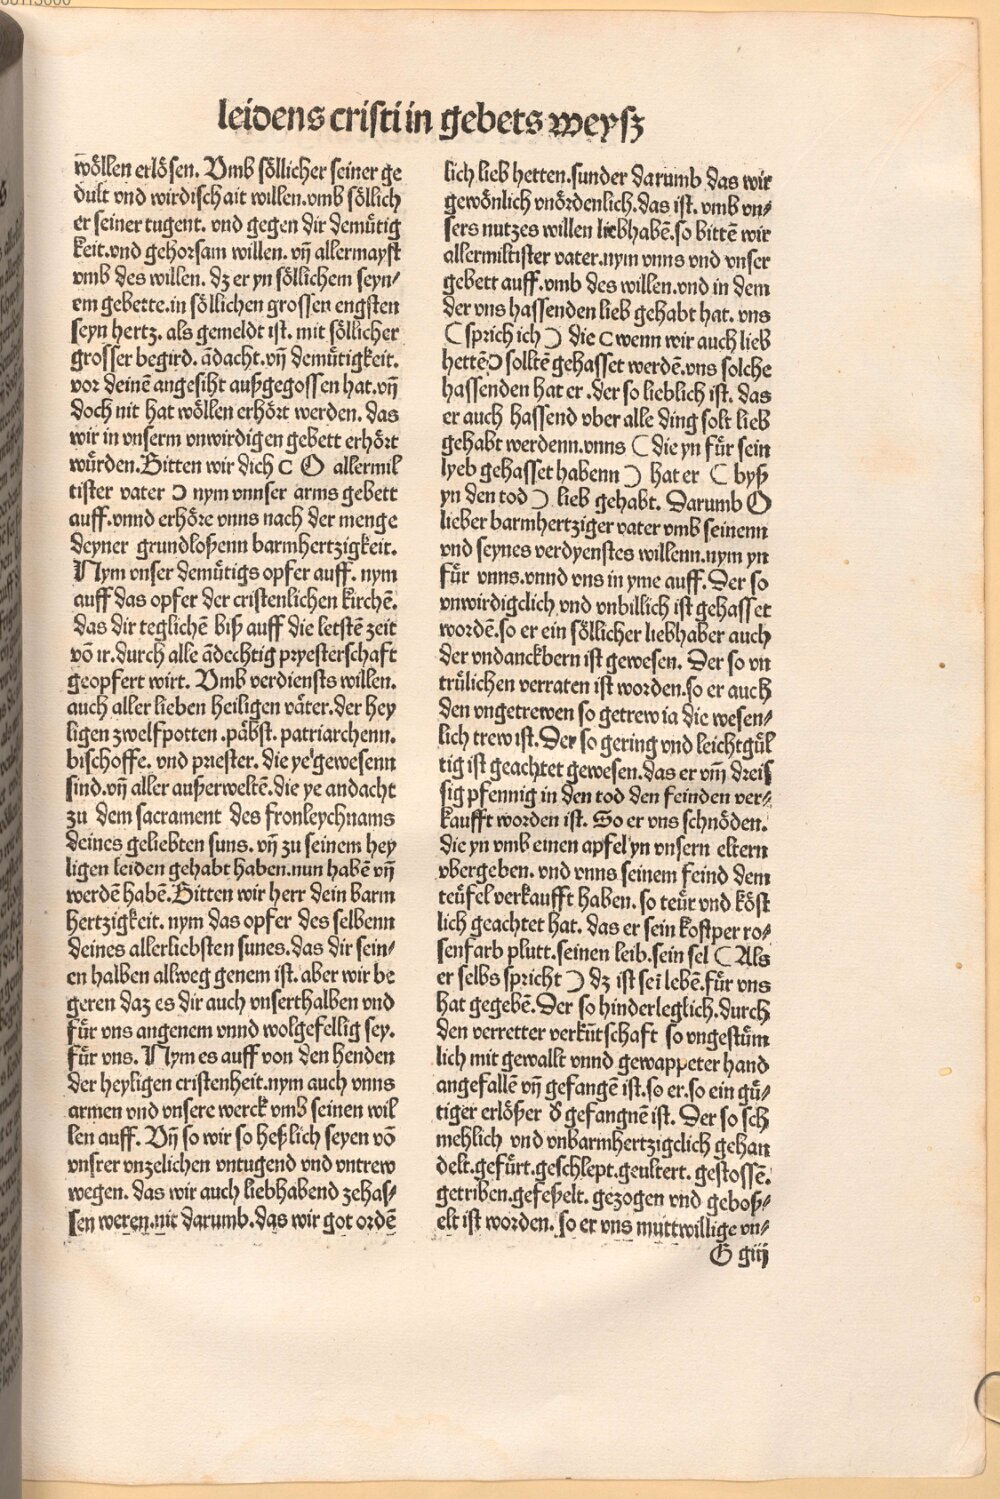 leidens cristi in gebets weysz
wöllen erlösen. Vmb söllicher seiner ge
dult vnd wirdischait willen.vmb söllich
er seiner tugent. vnd gegen dir demůtig
keit.vnd gehorsam willen. vñ allermayst
vmb des willen. dz er yn söllichem seyn⸗
em gebette.in söllichen grossen engsten
seyn hertz. als gemeldt ist. mit söllicher
grosser begird. ãdacht.vñ demůtigkeit.
vor deinē angesiht außgegossen hat.vñ
doch nit hat wöllen erhört werden. das
wir in vnserm vnwirdigen gebett erhört
würden.Bitten wir dich ( O allermil
tister vater ) nym vnnser arms gebett
auff.vnnd erhöre vnns nach der menge
deyner grundloßenn barmhertzigkeit.
Nym vnser demůtigs opfer auff. nym
auff das opfer der cristenlichen kirchē.
das dir teglichē biß auff die letstē zeit
võ ir.durch alle ãdechtig pryesterschaft
geopfert wirt. Vmb verdiensts willen.
auch aller lieben heiligen väter.der hey
ligen zwelfpotten .päbst. patriarchenn.
bischoffe. vnd priester. die ye gewesenn
sind.vñ aller außerweltē.die ye andacht
zu dem sacrament des fronleychnams
deines geliebten suns. vñ zu seinem hey
ligen leiden gehabt haben.nun habē vñ
werdē habē.Bitten wir herr dein barm
hertzigkeit. nym das opfer des selbenn
deines allerliebsten sunes.das dir sein⸗
en halben allweg genem ist. aber wir be
geren daz es dir auch vnserthalben vnd
für vns angenem vnnd wolgefellig sey.
für vns. Nym es auff von den henden
der heyligen cristenheit.nym auch vnns
armen vnd vnsere werck vmb seinen wil
len auff. Vñ so wir so heßlich seyen võ
vnsrer vnzelichen vntugend vnd vntrew
wegen. das wir auch liebhabend zehas⸗
sen weren.nit darumb.das wir got ordē
lich lieb hetten.sunder darumb das wir
gewönlich vnördenlich.das ist. vmb vn⸗
sers nutzes willen liebhabē.so bittē wir
allermiltister vater.nym vnns vnd vnser
gebett auff.vmb des willen.vnd in dem
der vns hassenden lieb gehabt hat. vns
( sprich ich ) die (wenn wir auch lieb
hettē) solltē gehasset werdē.vns solche
hassenden hat er .der so lieblich ist. das
er auch hassend vber alle ding solt lieb
gehabt werdenn.vnns ( die yn für sein
lyeb gehasset habenn ) hat er ( byß
yn den tod ) lieb gehabt. Darumb O
lieber barmhertziger vater vmb seinenn
vnd seynes verdyenstes willenn.nym yn
für vnns.vnnd vns in yme auff. Der so
vnwirdigclich vnd vnbillich ist gehasset
wordē.so er ein söllicher liebhaber auch
der vndanckbern ist gewesen. Der so vn
trülichen verraten ist worden.so er auch
den vngetrewen so getrew ia die wesen⸗
lich trew ist. Der so gering vnd leichtgül
tig ist geachtet gewesen.das er vm dreis
sig pfennig in den tod den feinden ver⸗
kaufft worden ist. So er vns schnöden.
die yn vmb einen apfel yn vnsern eltern
vbergeben. vnd vnns seinem feind dem
teüfel verkaufft haben. so teür vnd köst
lich geachtet hat. das er sein kostper ro⸗
senfarb plutt.seinen leib.sein sel ( Als
er selbs spricht ) dz ist sei lebē.für vns
hat gegebē.Der so hinderleglich.durch
den verretter verkūtschaft so vngestům
lich mit gewallt vnnd gewappeter hand
angefallē vñ gefangē ist.so er.so ein gü⸗
tiger erlößer d gefangnē ist. Der so sch
mehlich vnd vnbarmhertzigclich gehan
delt.gefürt.geschlept.geultert. gestossē.
getriben.gefeßelt. gezogen vnd geboß⸗
elt ist worden. so er vns muttwillige vn⸗
G giij